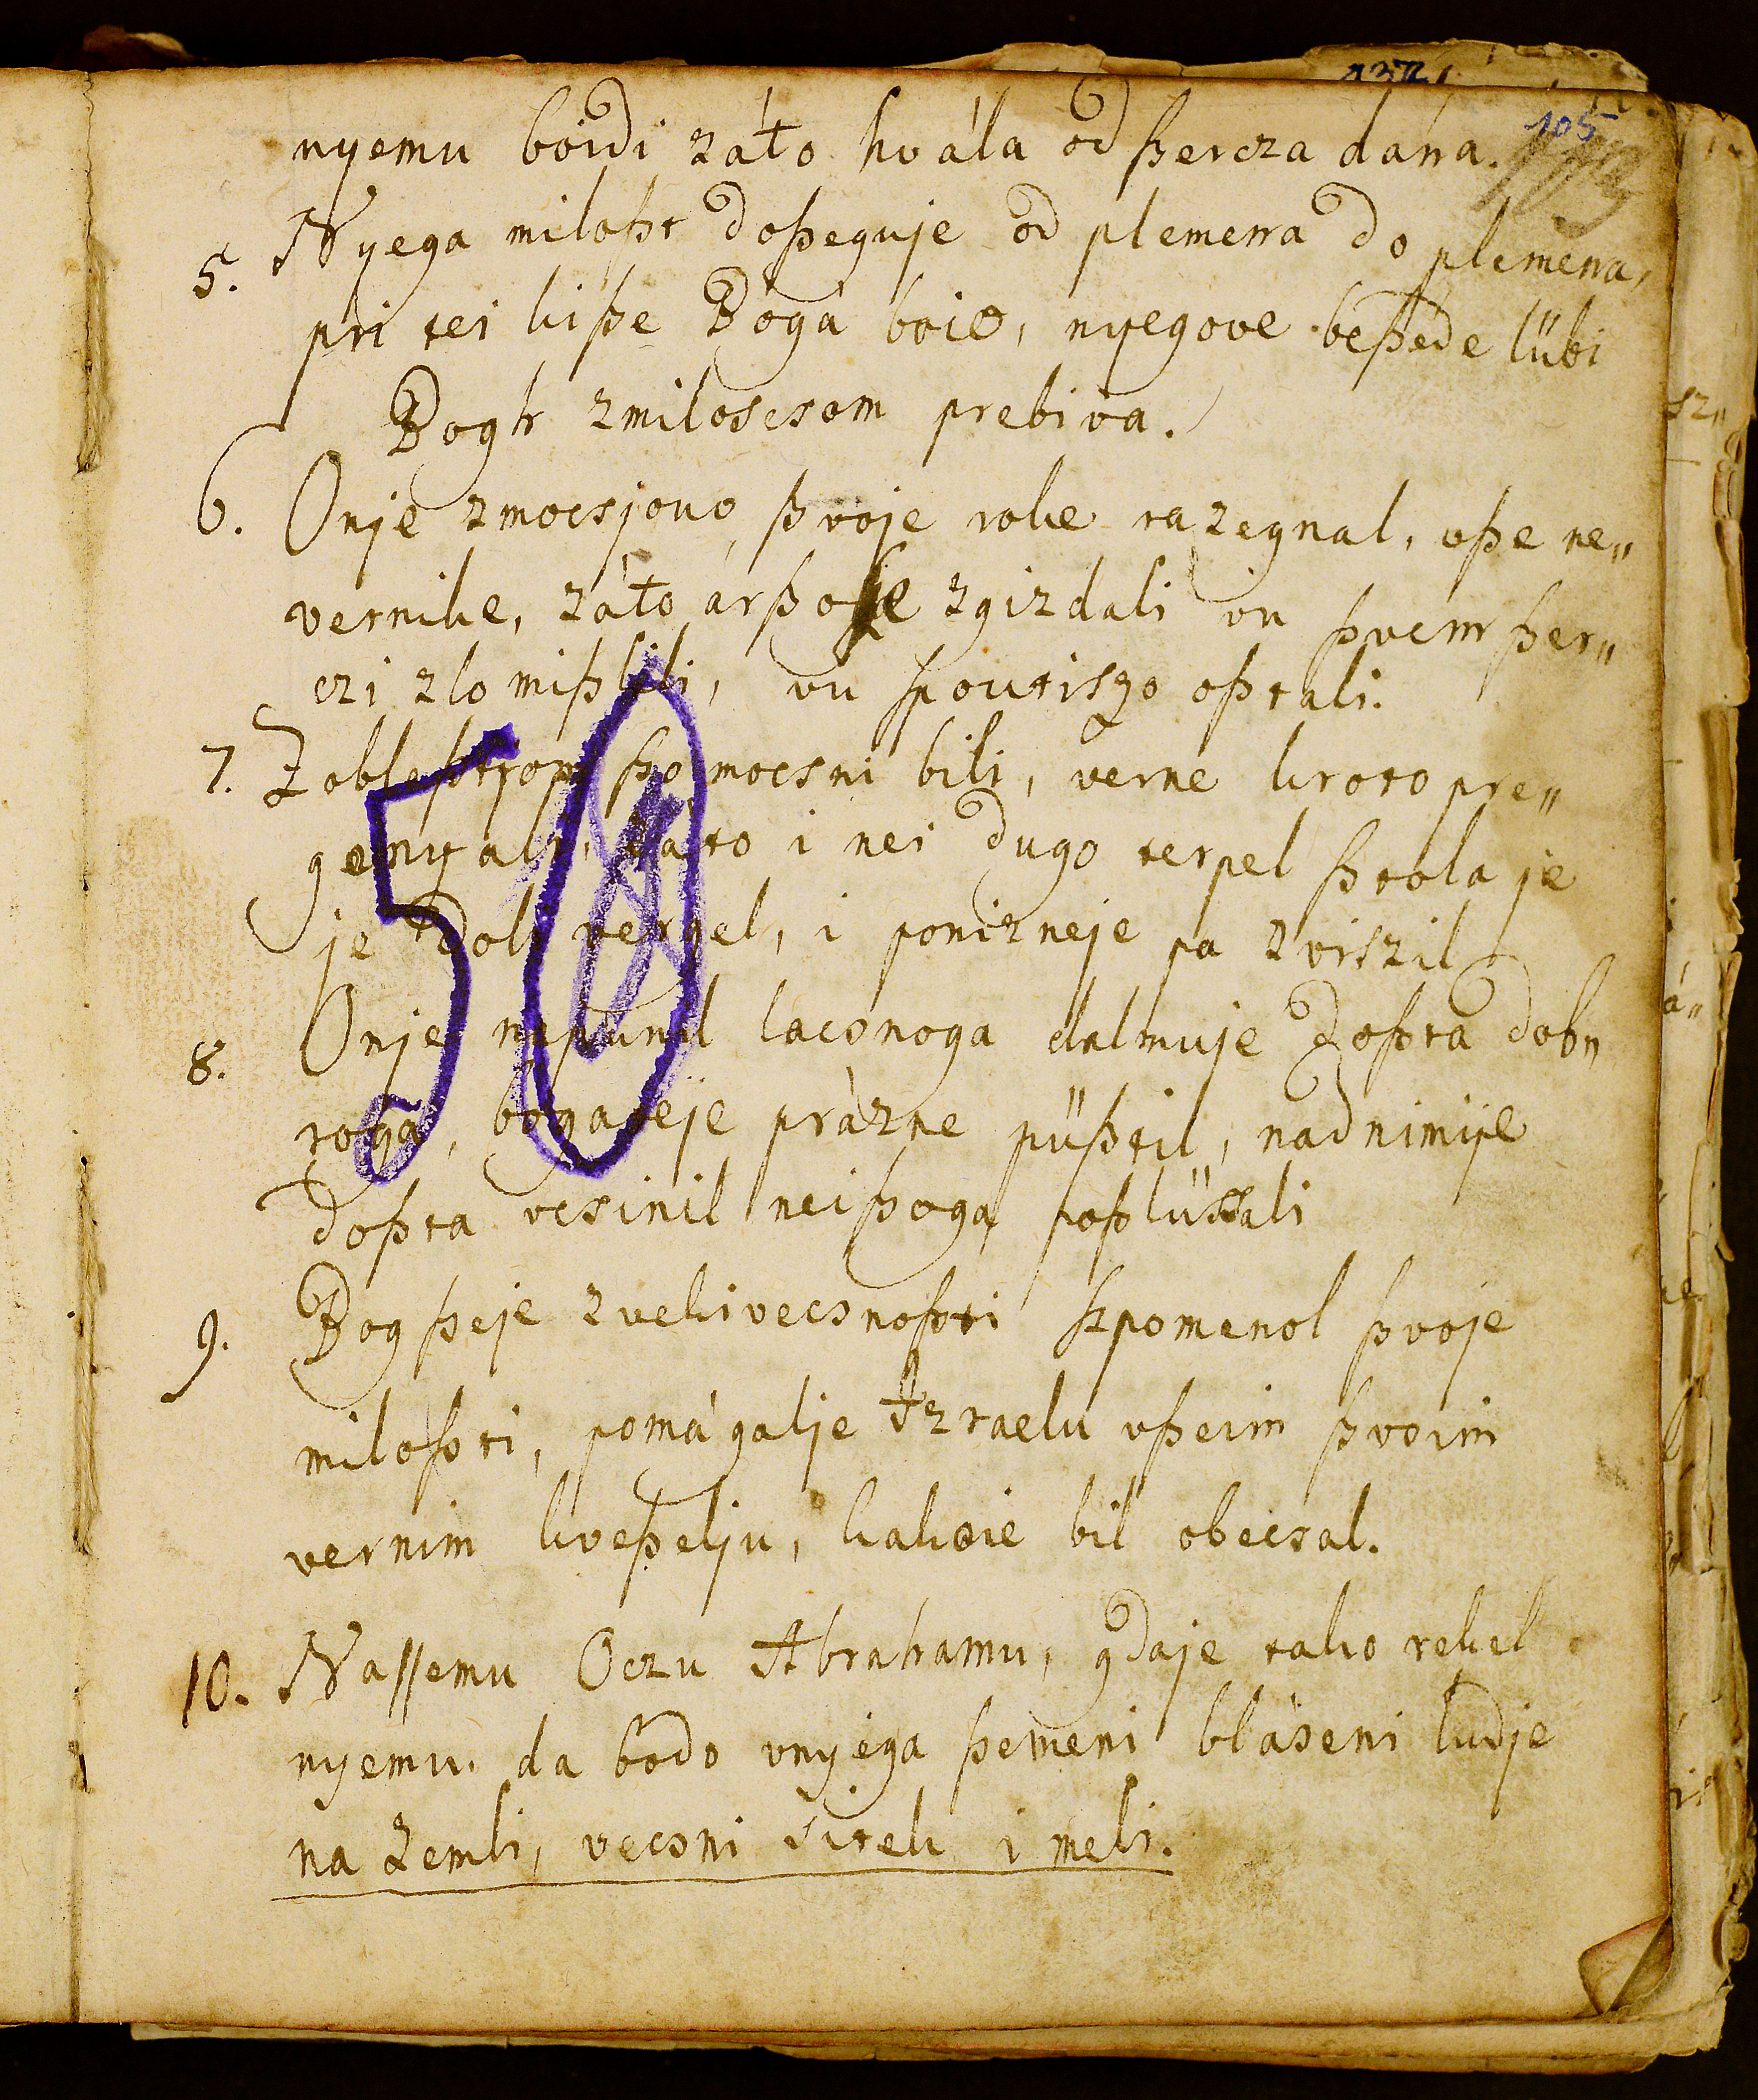 105
nyemu boidi záto hvála od ßercza dána.
5. Nyega miloßt doßeguje od plemena do plemena,
pri tei kiße Boga boio, nyegove beßede lübi
Bogh zmiloscsom prebiva.
6. Onje zmocsjouo ßvoje roke razegnal, vße ne„
vernike, záto ár ßo ße zgizdali vu ßvem ßer„
czi zlo mißlili, vu ſpoutiszo oßtali.
7. Zoblaßtjom ßo mocsni bili, verne kroto pre„
genyali, záto i nei dugo terpel ßtola je
je doli vergel, i ponizneje pa zviszil
8. Onje napunil lacsnoga dalmuje doßta dob„
roga, bogateje prázne püßtil, nad nimije
doßta vcsinil nei ßoga poßlüssali
9. Bog ßeje zvekivecsnoßti ſzpomenol ßvoje
miloßti, pomágalje Izraelu vßeim ßvoim
vernim kveßelju, kakoie bil obecsal.
10. Naſſemu Oczu Abrahamu, gdaje tako rekel
nyemu, da bodo vnyega ßemeni bláseni ludje
na zemli, vecsni sitek i meli.
50